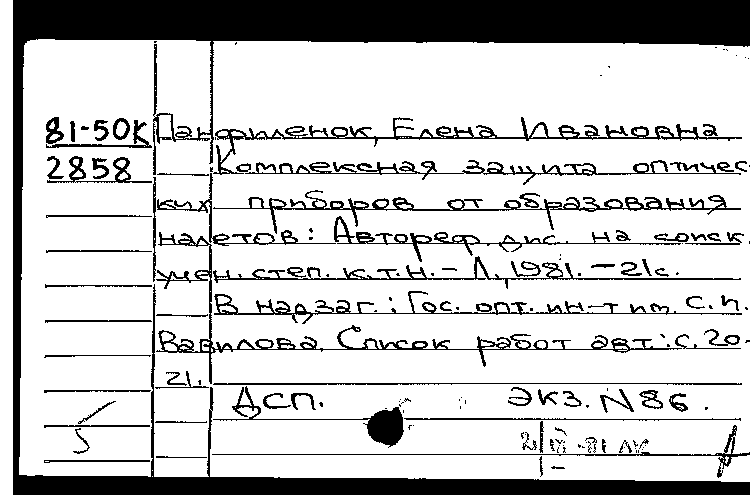 81-50К Панфиленок, Елена Ивановна.
2858 Комплексная защита оптичес-
ких приборов от образования
налетов: Автореф. дис. на соиск.
учен. степ. к.т.н. – Л., 1981. – 21с.
В надзаг.: Гос. опт. ин-т им. С.И.
Вавилова. Список работ авт.: с. 20-
21.
ДСП. экз. N 86.
5